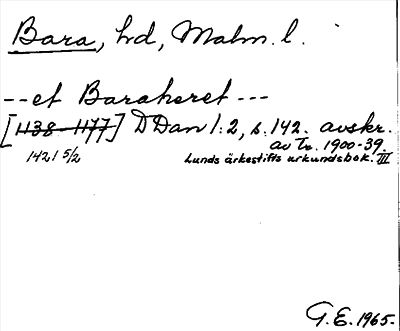 Bara, hd, Malm. l.
-- et Baraheret ---
[1138-1177] DDan 1:2, s. 142. avskr.
av Tr. 1900-39.
1421 5/2 Lunds ärkestifts urkundsbok. III
G.E. 1965.